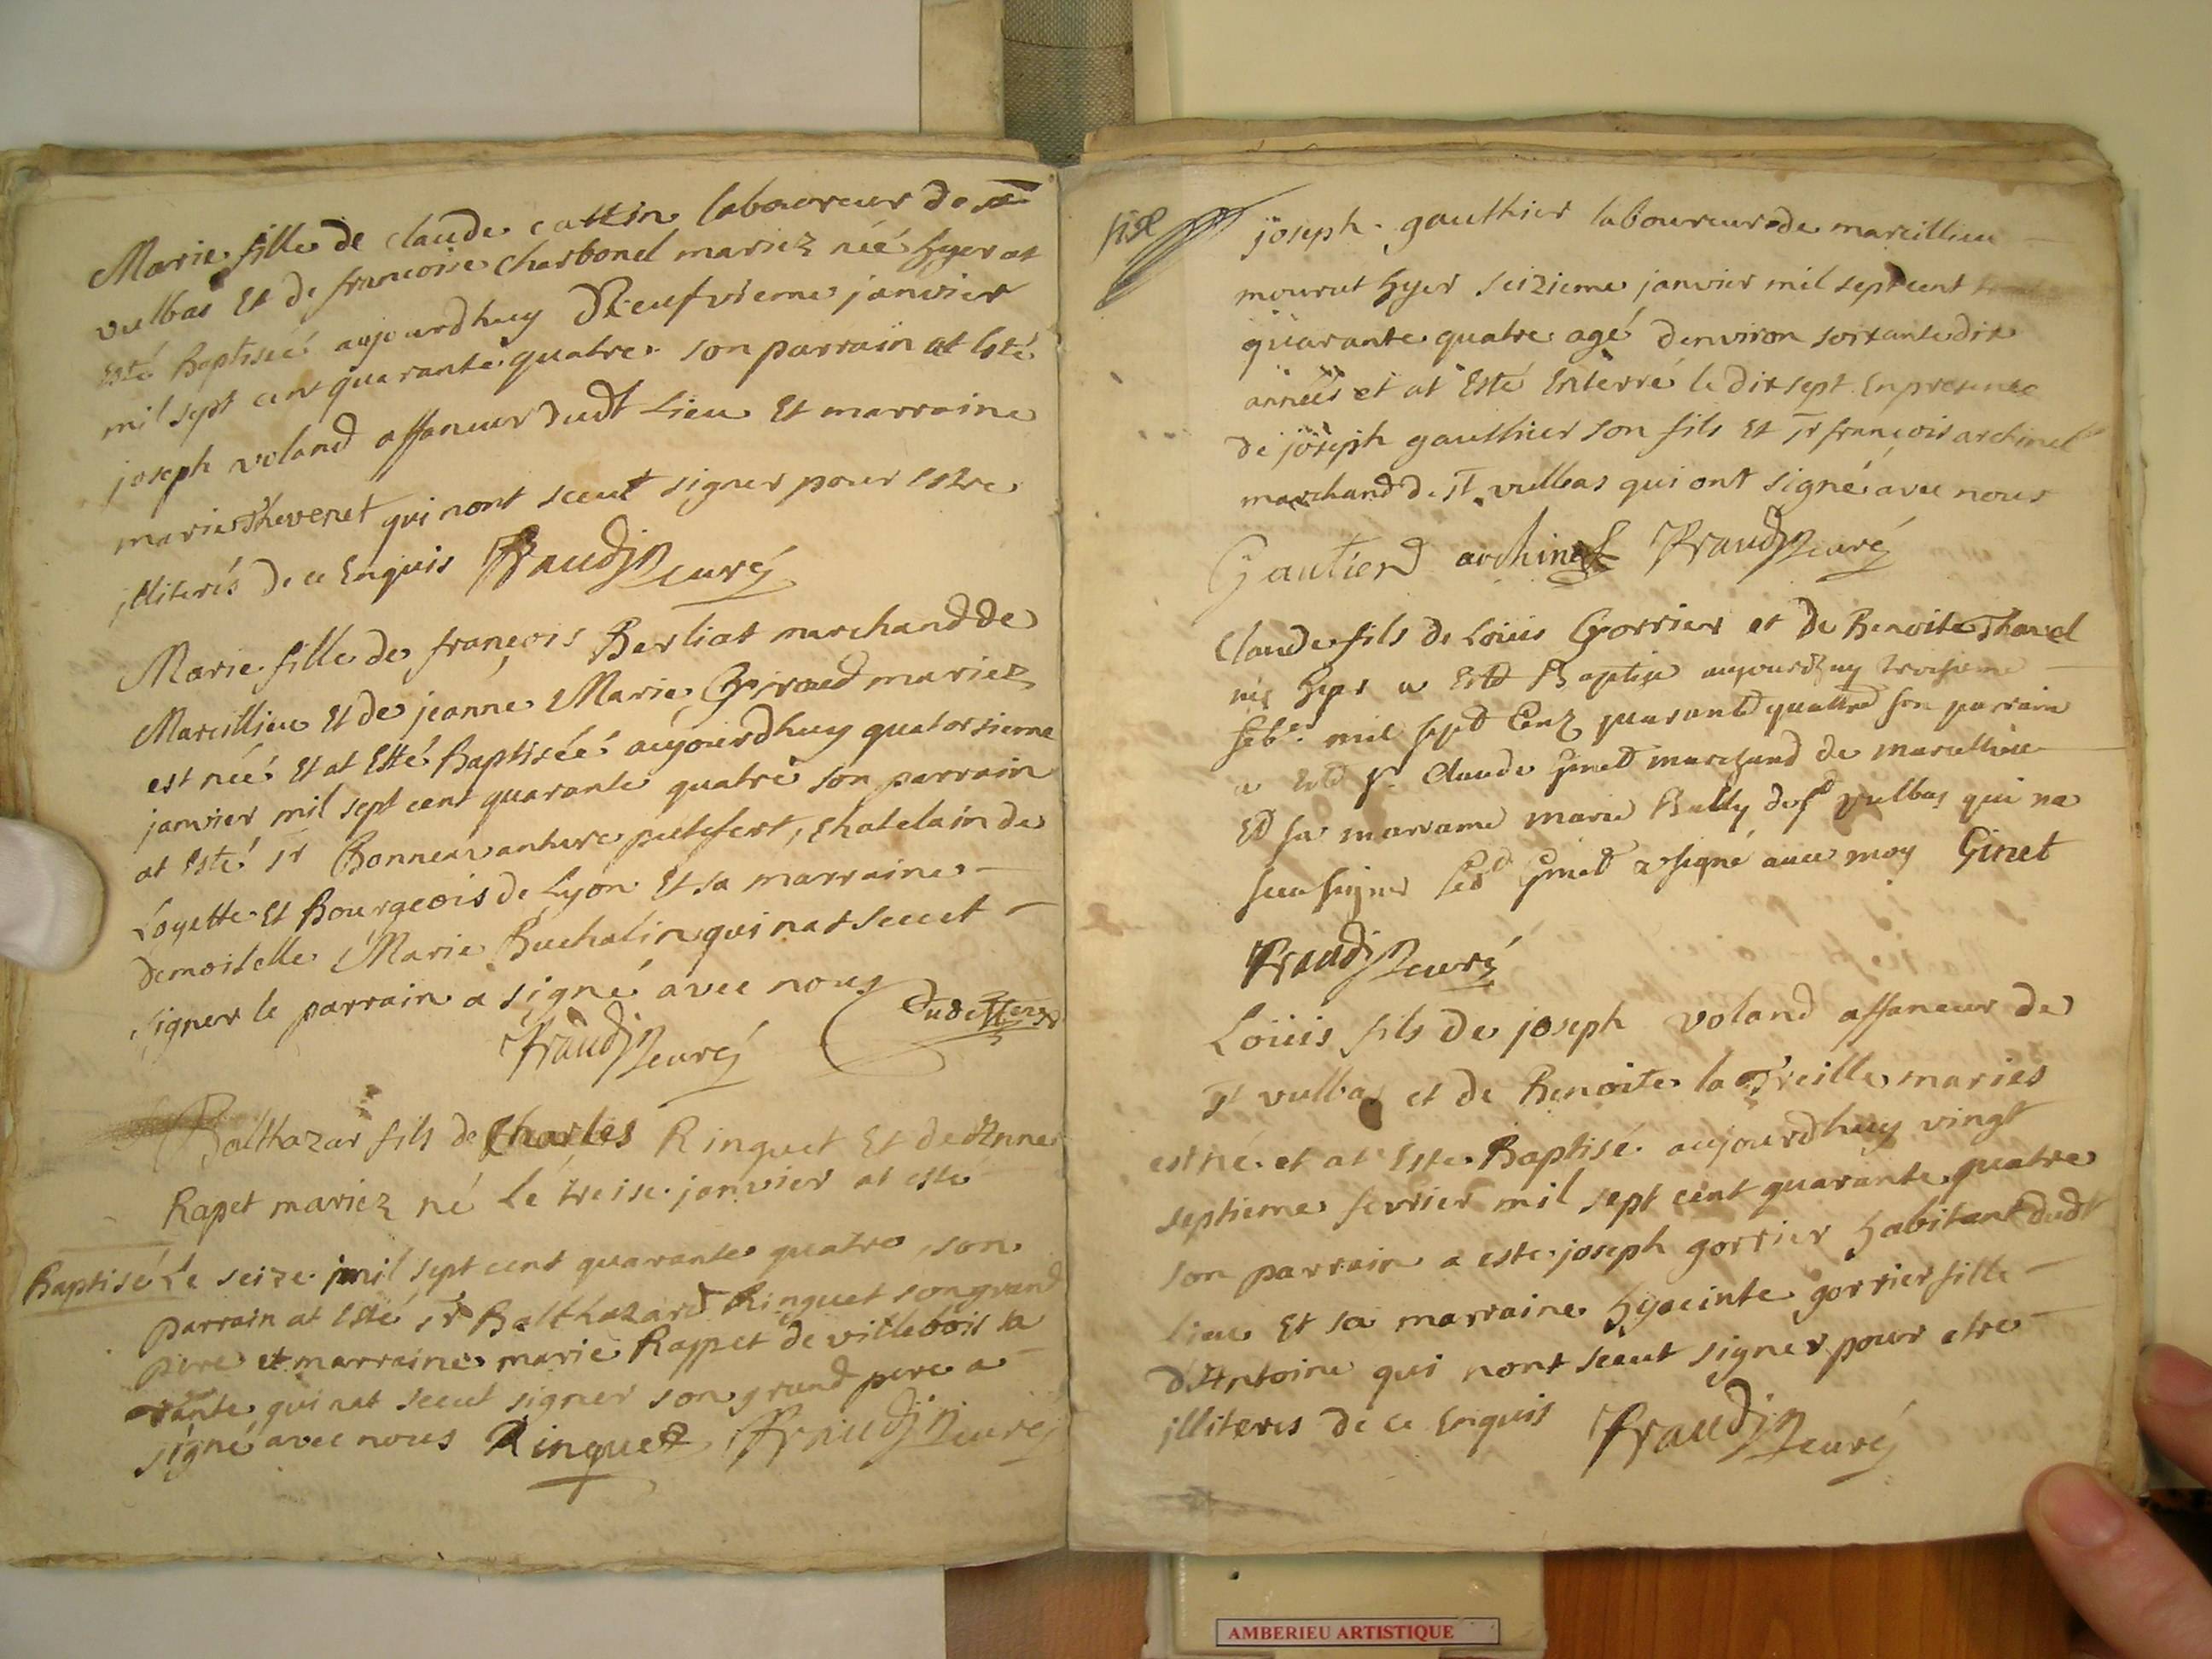 Marie fille de claude cattin laboureur de st
vulbas Et de francoise charbonel mariez néé hyer at
esté Baptiséé aujourdhuy Neufvieme janvier
mil sept cent quarante quatre son parrain at esté
joseph voland affaneur dudt Lieu Et marraine
marie Thevenet qui nont sceut signer pour estre
jlliterés de ce Enquis Fraudin curé
Marie fille de françois Berliat marchand de
Marcillieu Et de jeanne Marie Giraud mariez
est néé Et at Esté Baptiséé aujourdhuy quatorsieme
janvier mil sept cent quarante quatre son parrain
at Esté sr Bonneavanture , chatelain de
Loyette Et Bourgeois de Lyon Et sa marraine
demoiselle Marie Buchalin qui nat sceut
signer le parrain a signé avec nous
Fraudin curé
Balthazar fils de Charles Ringuet Et de Anne
Rapet mariez né Le treise janvier at esté
Baptisé Le seize mil sept cent quarante quatre son
parrain at Esté sr Balthazard Ringuet son grand
pere et marraine marie Rappet de villebois sa
tante qui nat sceut signer son grand pere a
signé avec nous Ringuet Fraudin curé
joseph gauthier laboureur de marcillieu
mourut hyer seizieme janvier mil sept cent
quarante quatre agé denviron soixante dix
annéés et at Esté Enterré le dix sept En presence
de joseph gauthier son fils Et sr françois archinet
marchand de st vulbas qui ont signé avec nous
Gautier archinet Fraudin curé
Claude fils de Loüis Gorrier et de Benoite Thavel
né hyer a Esté Baptisé aujourdhuy troisieme
feb.r mil sept Cent quarante quattre son parrain
a Esté sr. Claude Ginet marchand de marcillieu
Et sa marraine marie Bally de st vulbas qui na
sceu signer led Ginet a signé avec moy Ginet
Fraudin curé
Loüis fils de joseph voland affaneur de
st vulbas et de Benoite la Treille mariés
est né et at Esté Baptisé aujourdhuy vingt
septieme fevrier mil sept cent quarante quatre
son parrain a este joseph gorrier habitant dudt
lieu Et sa marraine hyacinte gorrier fille
d'Antoine qui nont sceut signer pour etre
jlliteres de ce Enquis Fraudin curé
AMBERIEU ARTISTIQUE